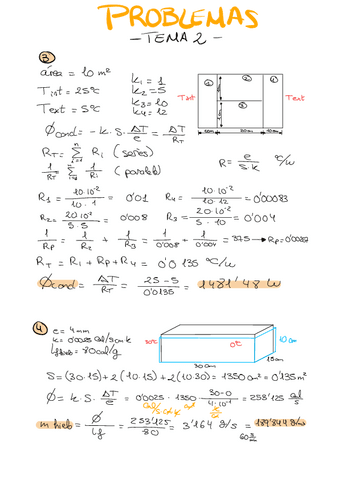 PROBLEMAS
- TEMA 2 -
3
área = 10 m²
Tint = 25°C
Text = 5°C
k₁ = 1
k₂ = 5
k₃ = 10
k₄ = 12
① ② ③ ④
Tint Text
10cm 20cm 10cm
ϕcond = - K · S · ΔT/e = ΔT/RT
RT = Σ Ri (series)
1/RT = Σ 1/Ri (paralelo)
R = e/(S·k) °C/W
R₁ = 10·10⁻²/(10·1) = 0'01
R₄ = 10·10⁻²/(10·12) = 0'00083
R₂ = 20·10⁻²/(5·5) = 0'008
R₃ = 20·10⁻²/(5·10) = 0'004
1/Rp = 1/R₂ + 1/R₃ = 1/0'008 + 1/0'004 = 375 → Rp =
RT = R₁ + Rp + R₄ = 0'0135 °C/W
ϕcond = ΔT/RT = (25-5)/0'0135 = 1481'48 W
4
e = 4mm
k =
= 80 cal/g
30°C 0°C 10cm
15cm
30cm
S = (30·15) + 2(10·15) + 2(10·30) = 1350 cm² = 0'135 m²
ϕ = k · S · ΔT/e = 0'0025 · 1350 · (30-0)/(4·10⁻¹) = 253'125 cal/s
m hielo = ϕ/Lf = 253'125/80 = 3'164 g/s =